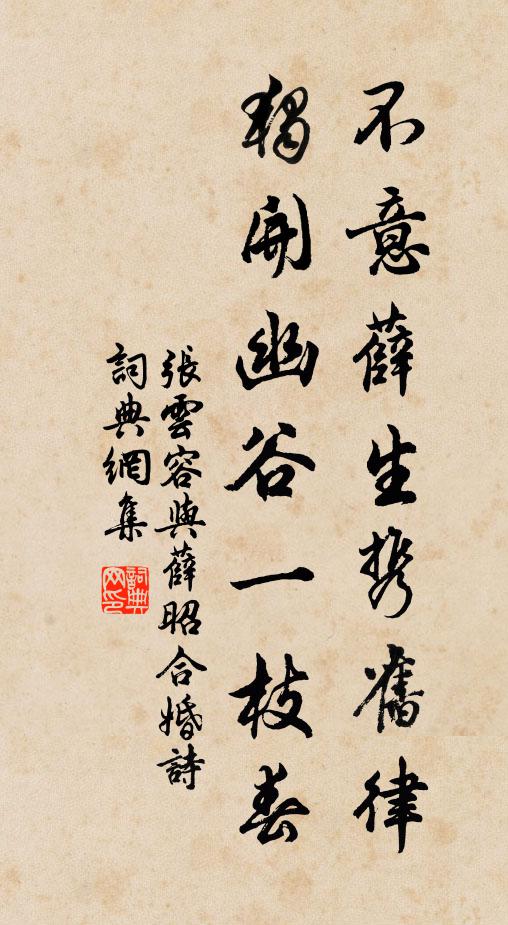 不意薛生携舊律
獨開幽谷一枝春
張雲容與薛昭合婚詩
詞典網集
詞典网印